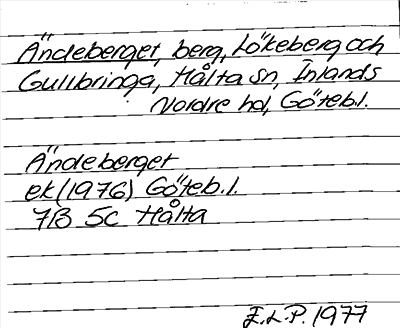 Ändeberget, berg, Lökeberg och
Gullbringa, Hålta sn, Inlands
Nordre hd, Göteb.l.
Ändeberget
ek (1976) Göteb.l.
7B 5c Hålta
E.L.P. 1977